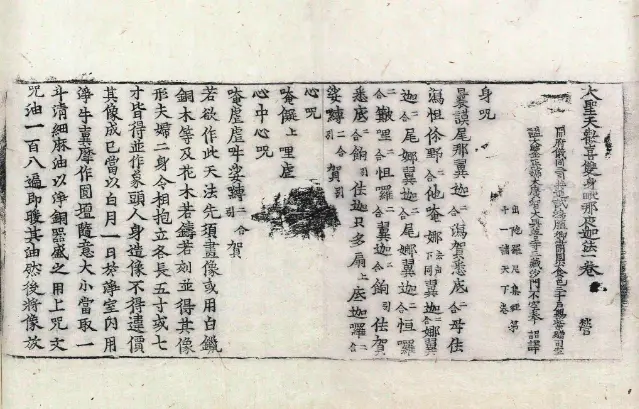 大聖天歡喜雙身毗那夜迦法一卷
開府儀同三司特進試鴻臚卿肅國公食邑三千戶賜紫贈司空
謚大鑒正號大廣智大興善寺三藏沙門不空奉 詔譯
出陀羅尼集經第
十一諸天下卷
身呪
曩謨尾那翼迦二合瀉賀悉底二合母佉
瀉怛侘野二合他唵娜去声下同翼迦娜翼
迦二合尾娜翼迦二合怛囉
二合簸哩二合怛囉二合翼迦二合餉佉賀
悉底二合餉引佉迦只多扇上底迦囉二合
娑嚩二合引賀引
心呪
唵儗上哩虐
心中心呪
唵虐虐吽娑嚩二合引賀
若欲作此天法先須畫像或用白鑞
銅木等及花木若鑄若刻並得其像
形夫婦二身令相抱立各長五寸或七
寸皆得並作象頭人身造像不得違價
其像成已當以白月一日於淨室內用
淨牛糞摩作圓壇隨意大小當取一
斗清細麻油以淨銅器盛之用上呪文
呪油一百八遍即暖其油然後將像放